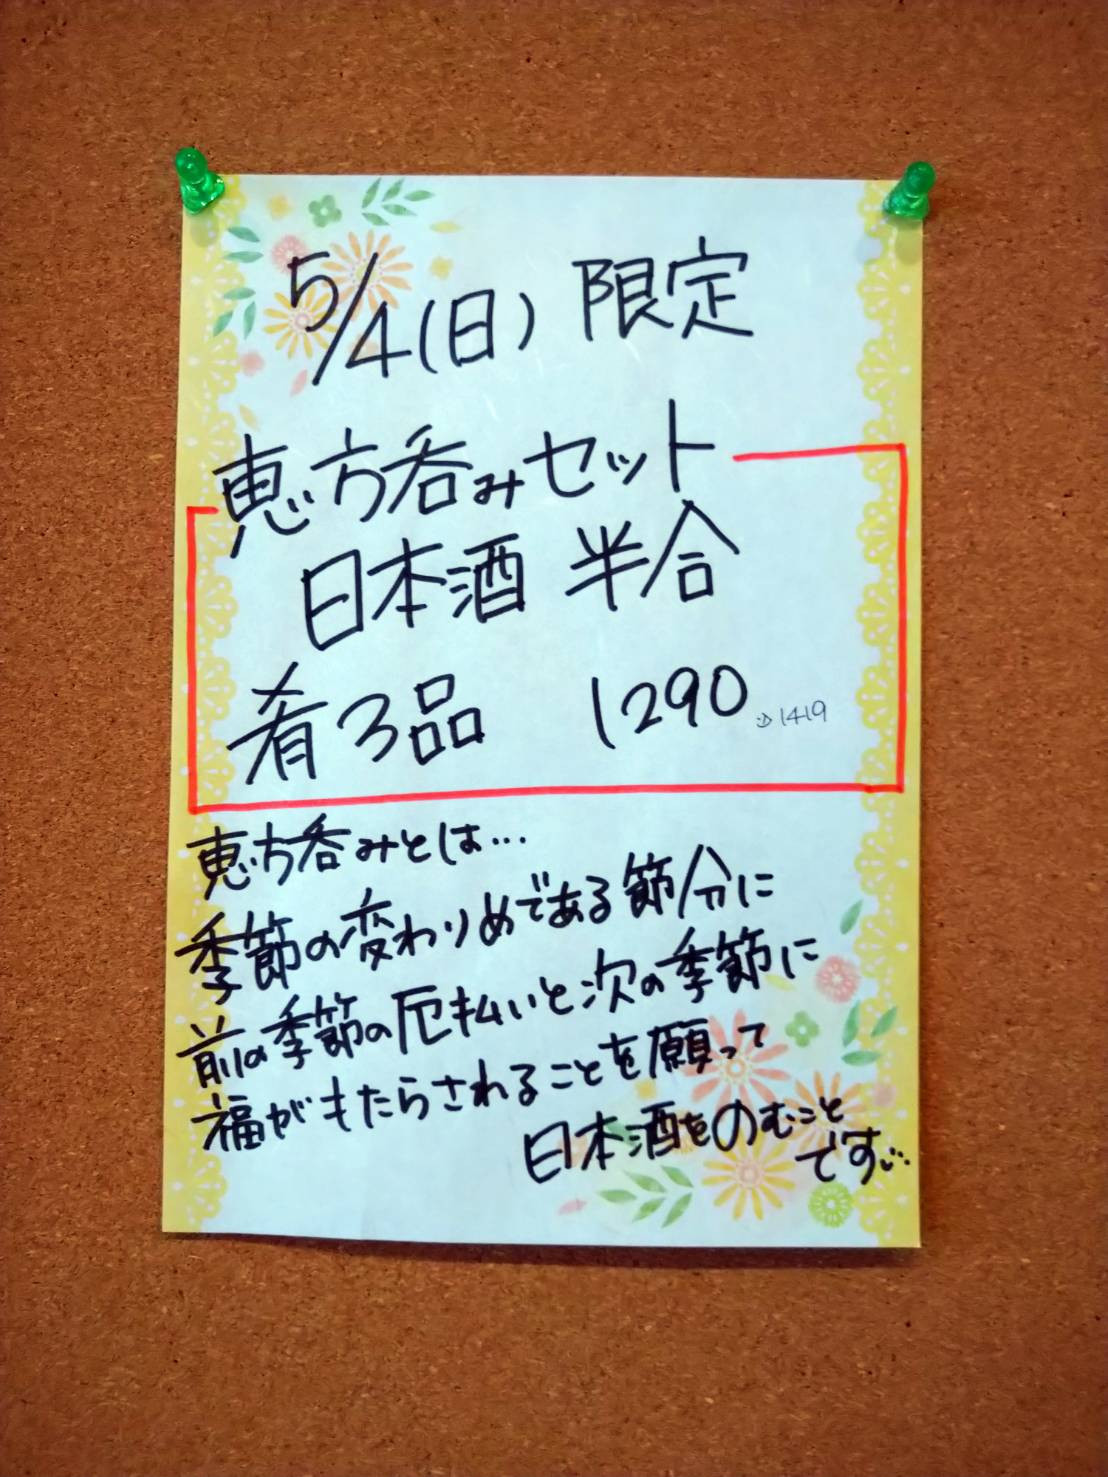 5/4(日) 限定
恵方呑みセット
日本酒 半合
肴3品 1290 1419
恵方呑みとは…
季節の変わりめである節分に
前の季節の厄払いと次の季節に
福がもたらされることを願って
日本酒をのむこと
です